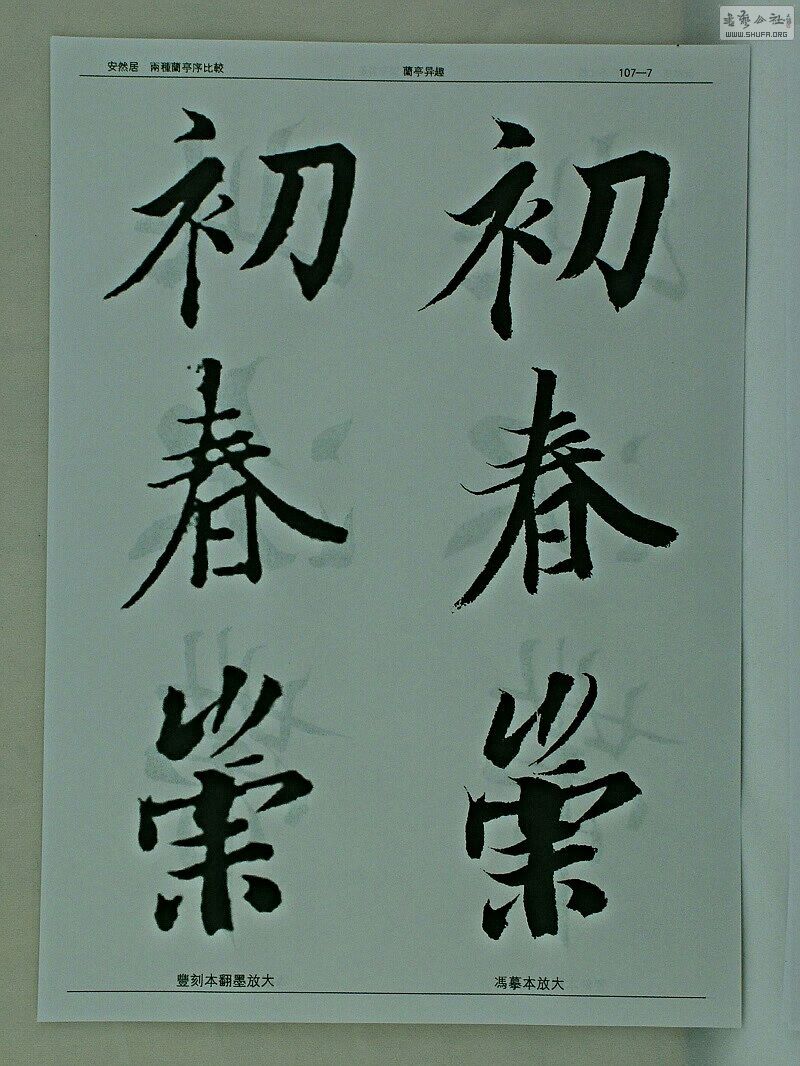 書藝公社
WWW.SHUFA.ORG
安然居 兩種蘭亭序比較 蘭亭异趣 107—7
初 初
春 春
崇 崇
豐刻本翻墨放大 馮摹本放大